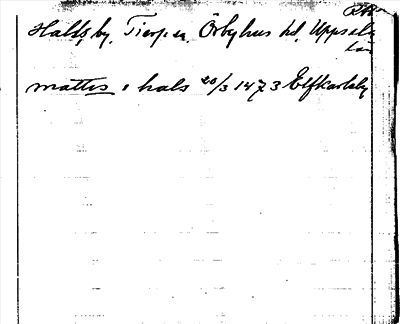 Hals, by, Tierps sn Örbyhus hd, Uppsala
län
mattis i hals 20/3 1473 Elfkarleby